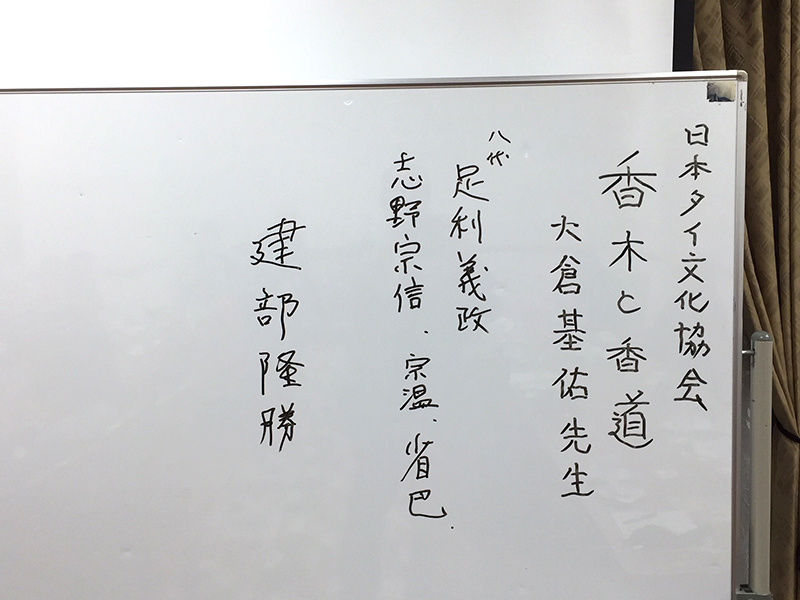 日本タイ文化協会
香木と香道
大倉基佑先生
八代
足利義政
志野宗信、宗温、省巴.
建部隆勝